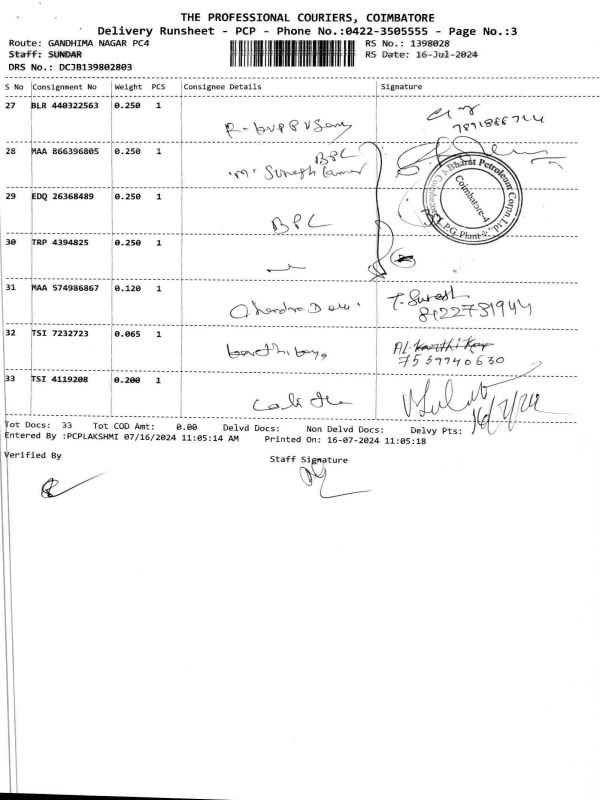 THE PROFESSIONAL COURIERS, COIMBATORE
Delivery Runsheet - PCP - Phone No.:0422-3505555 - Page No.:3
Route: GANDHIMA NAGAR PC4
RS No.: 1398028
Staff: SUNDAR
RS Date: 16-Jul-2024
DRS No.: DCJB139802803
S No Consignment No Weight PCS Consignee Details Signature
27 BLR 440322563 0.250 1
28 MAA 866396805 0.250 1
BPC
29 EDQ 26368489 0.250 1
BPC
30 TRP 4394825 0.250 1
Bharat Petroleum Corpn Ltd.
L.P.G. Plant
Coimbatore-4
31 MAA 574986867 0.120 1
T. Suresh
8122731944
32 TSI 7232723 0.065 1
7539740630
33 TSI 4119208 0.200 1
16/7/24
Tot Docs: 33 Tot COD Amt: 0.00 Delvd Docs: Non Delvd Docs: Delvy Pts:
Entered By :PCPLAKSHMI 07/16/2024 11:05:14 AM Printed On: 16-07-2024 11:05:18
Verified By
Staff Signature